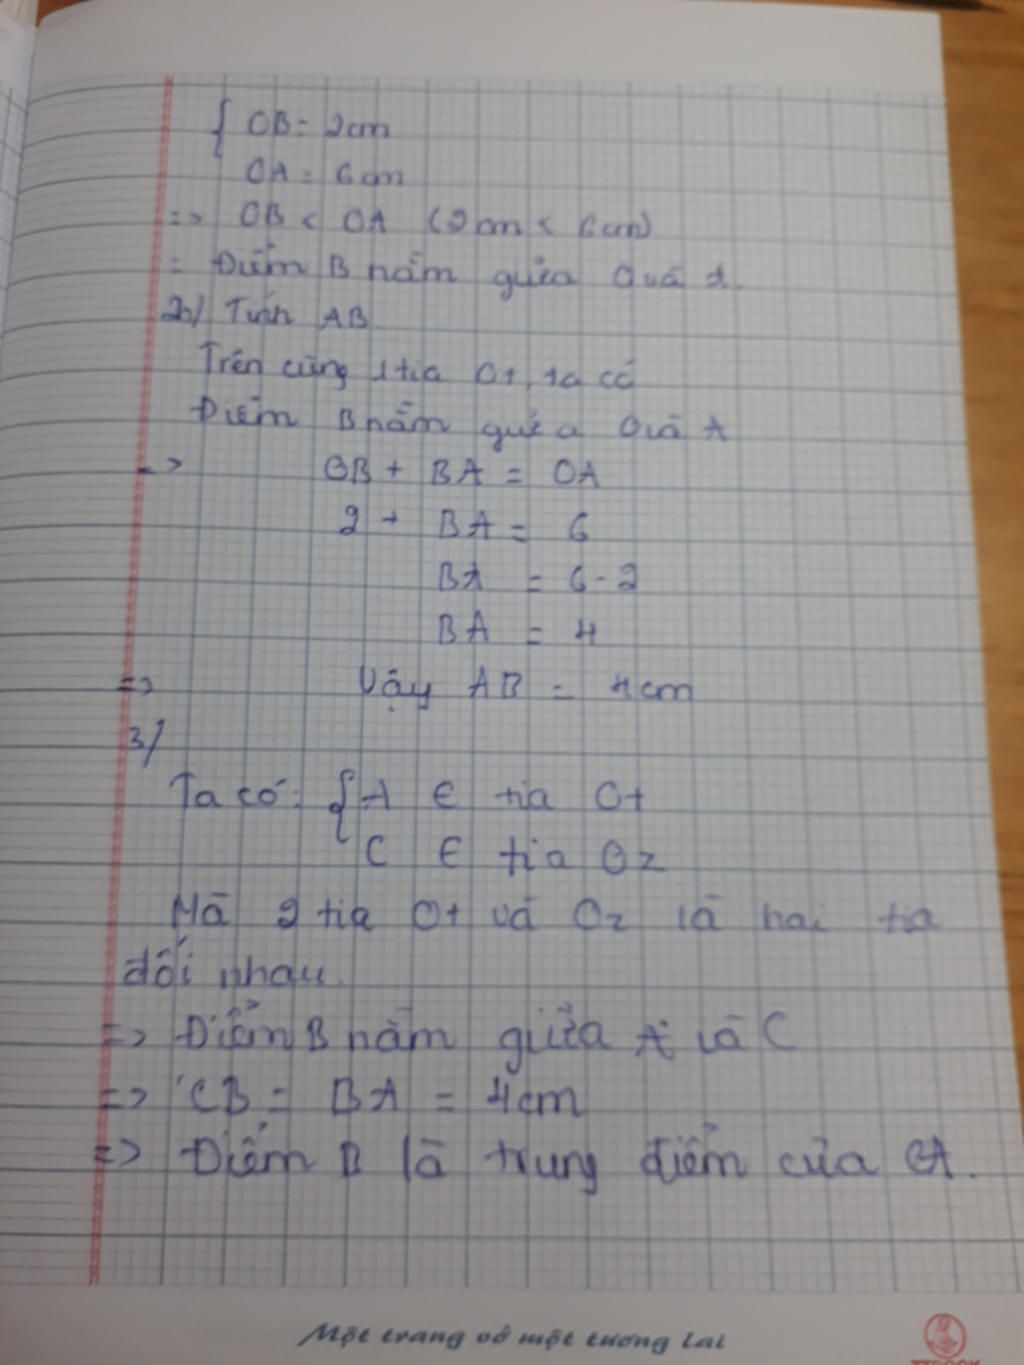 { OB = 2cm
OA = 6cm
=> OB < OA (2cm < 6cm)
= Điểm B nằm giữa O và A.
2b/ Tính AB
Trên cùng 1 tia Ot, ta có
Điểm B nằm giữa O và A
=> OB + BA = OA
2 + BA = 6
BA = 6 - 2
BA = 4
=> Vậy AB = 4cm
3/
Ta có: { A ∈ tia Ot
C ∈ tia Oz
Mà 2 tia Ot và Oz là hai tia
đối nhau.
=> Điểm B nằm giữa A và C
=> CB = BA = 4cm
=> Điểm B là trung điểm của CA.
Một trang vở một tương lai